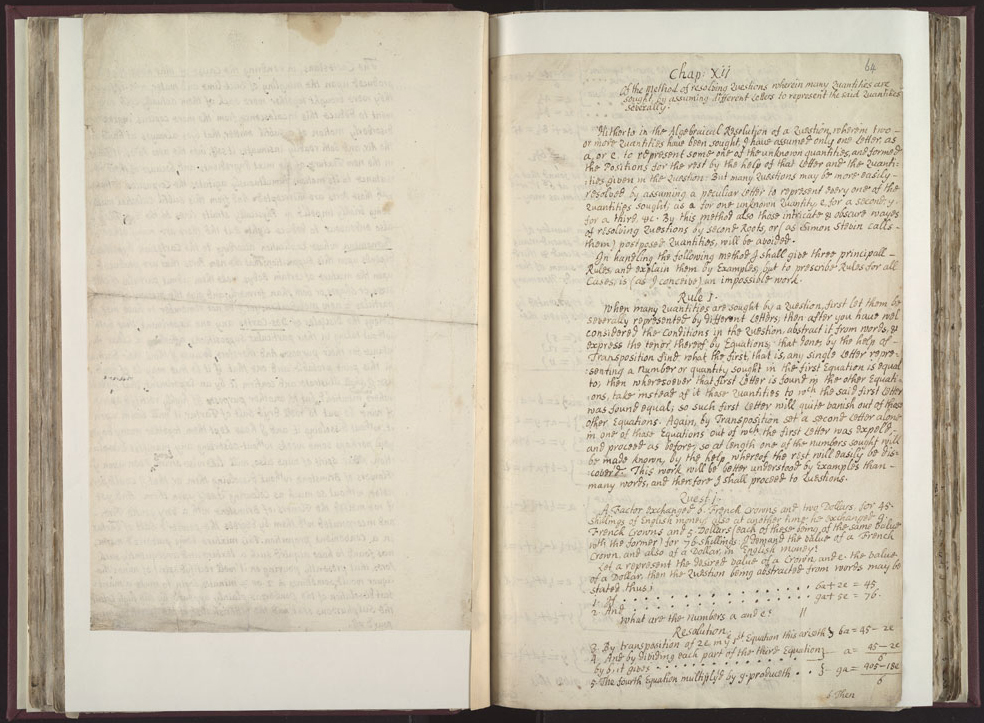 64
Chap: XII
Of the Method of resolving Questions wherein many Quantities are
sought, by assuming different Letters to represent the said Quantities
severally.
Hitherto in the Algebraical Resolution of a Question, wherein two
or more Quantities have been sought, I have assumed only one Letter, as
a, or e, to represent some one of the unknown quantities, and formed
the Positions for the rest by the help of that Letter and the Quanti-
ties given in the Question: But many Questions may be more easily
resolved by assuming a peculiar Letter to represent every one of the
Quantities sought; as a for one unknown Quantity, e, for a second; y.
for a third, &c. By this method also those intricate & obscure wayes
of resolving Questions by second Roots, or (as Simon Stevin calls
them) postposed Quantities, will be avoided.
In handling the following method I shall give three principall
Rules, and explain them by Examples; but to prescribe Rules for all
Cases; is (as I conceive) an impossible work.
Rule I.
When many Quantities are sought by a Question, first let them be
severally represented by different Letters; then after you have wel
considered the Conditions in the Question, abstract it from words, &
express the tenor thereof by Equations; that done, by the help of
Transposition find what the first, that is, any single Letter repre-
senting a Number or quantity sought in the first Equation is equal
to; then wheresoever that first Letter is found in the other Equati-
ons, take instead of it those Quantities to wch the said first Letter
was found equal; so such first Letter will quite vanish out of those
other Equations. Again, by Transposition set a second Letter alone
in one of those Equations out of wch the first Letter was expell'd,
and proceed as before; so at length one of the Numbers sought will
be made known, by the help whereof the rest will easily be dis-
covered. This work will be better understood by Examples than
many words, and therefore I shall proceed to Questions.
Quest 1.
A Factor exchanged 6. French Crowns and two Dollars for 45-
shillings of English money; also at another time he exchanged 9.
French Crowns and 5 Dollars (each of these being of the same value
with the former) for 76 shillings; I demand the value of a French
Crown, and also of a Dollar, in English money?
Let a represent the desired value of a Crown, and e. the value
of a Dollar, then the Question being abstracted from words may be
stated thus;
1. If . . . . . . . . . . . . . 6a + 2e = 45.
2. And . . . . . . . . . . . . . 9a + 5e = 76.
What are the numbers a and e? //
Resolution.
3. By transposition of 2e, in ye 1st Equation this ariseth } 6a = 45 − 2e
4. And by dividing each part of the third Equation } a = 45 − 2e
by 6. it gives . . . . . . . . . . 6
5. The fourth Equation multiply'd by 9. produceth . . } 9a = 405 − 18e
6
6. Then